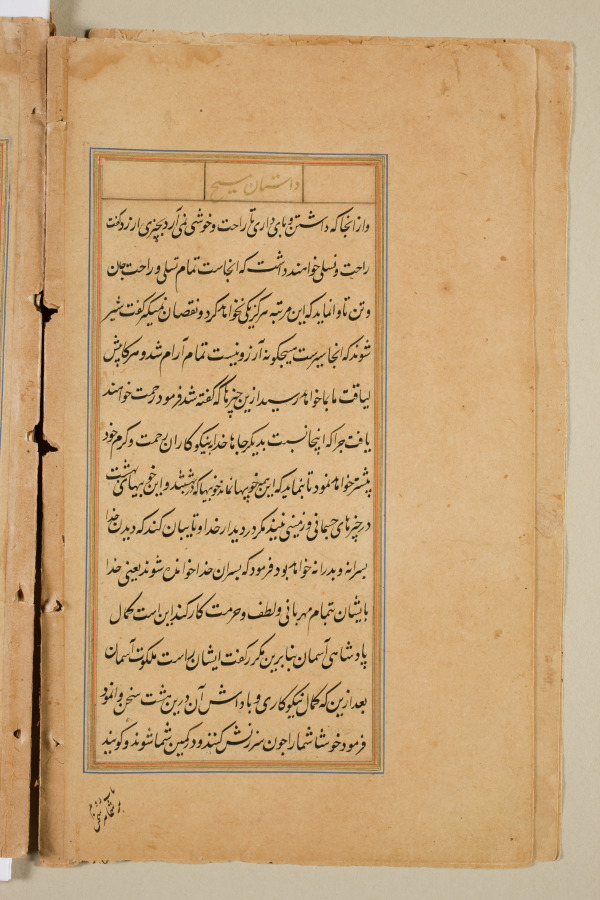 داستان مسیح
و از انجا که داشتن و پای داری تا راحت و خوشی نمی آرد بچیزی ارزد گفت
راحت و تسلی خواهند داشت که انجاست تمام تسلی و راحت جان
و تن تا وانماید که این مرتبه هرگز یکی نخواهد کرد و نقصان نمیگیرد گفت سیر
شوند که انجا سیریست هیچگونه آرزو نیست تمام آرام شد و هر کام پیش
لیاقت ما با خواهد رسید ازین چیزها که گفته شد فرمود رحمت خواهند
یافت چرا که اینجا نسبت بدیگر جاها خدا بنیکوکاران رحمت و کرم خود
پیشتر خواهد نمود تا بنماید که این همه خوبیها نماند خوبیها که در بهشتند و این خوبیهای بهشت
در چیزهای جسمانی و زمینی نیند مگر در دیدار خدا و تا بیان کند که دیدن خدا
پسرانه و پدرانه خواهد بود فرمود که پسران خدا خوانده شوند یعنی خدا
بایشان بتمام مهربانی و لطف و حرمت کار کند این است کمال
پادشاهی آسمان بنابرین مکرر گفت ایشان راست ملکوت آسمان
بعد ازین که کمال نیکوکاری و پاداش آن درین هشت سخن وانمود
فرمود خوشا شما را چون سرزنش کنند و در کمین شما شوند و گویند